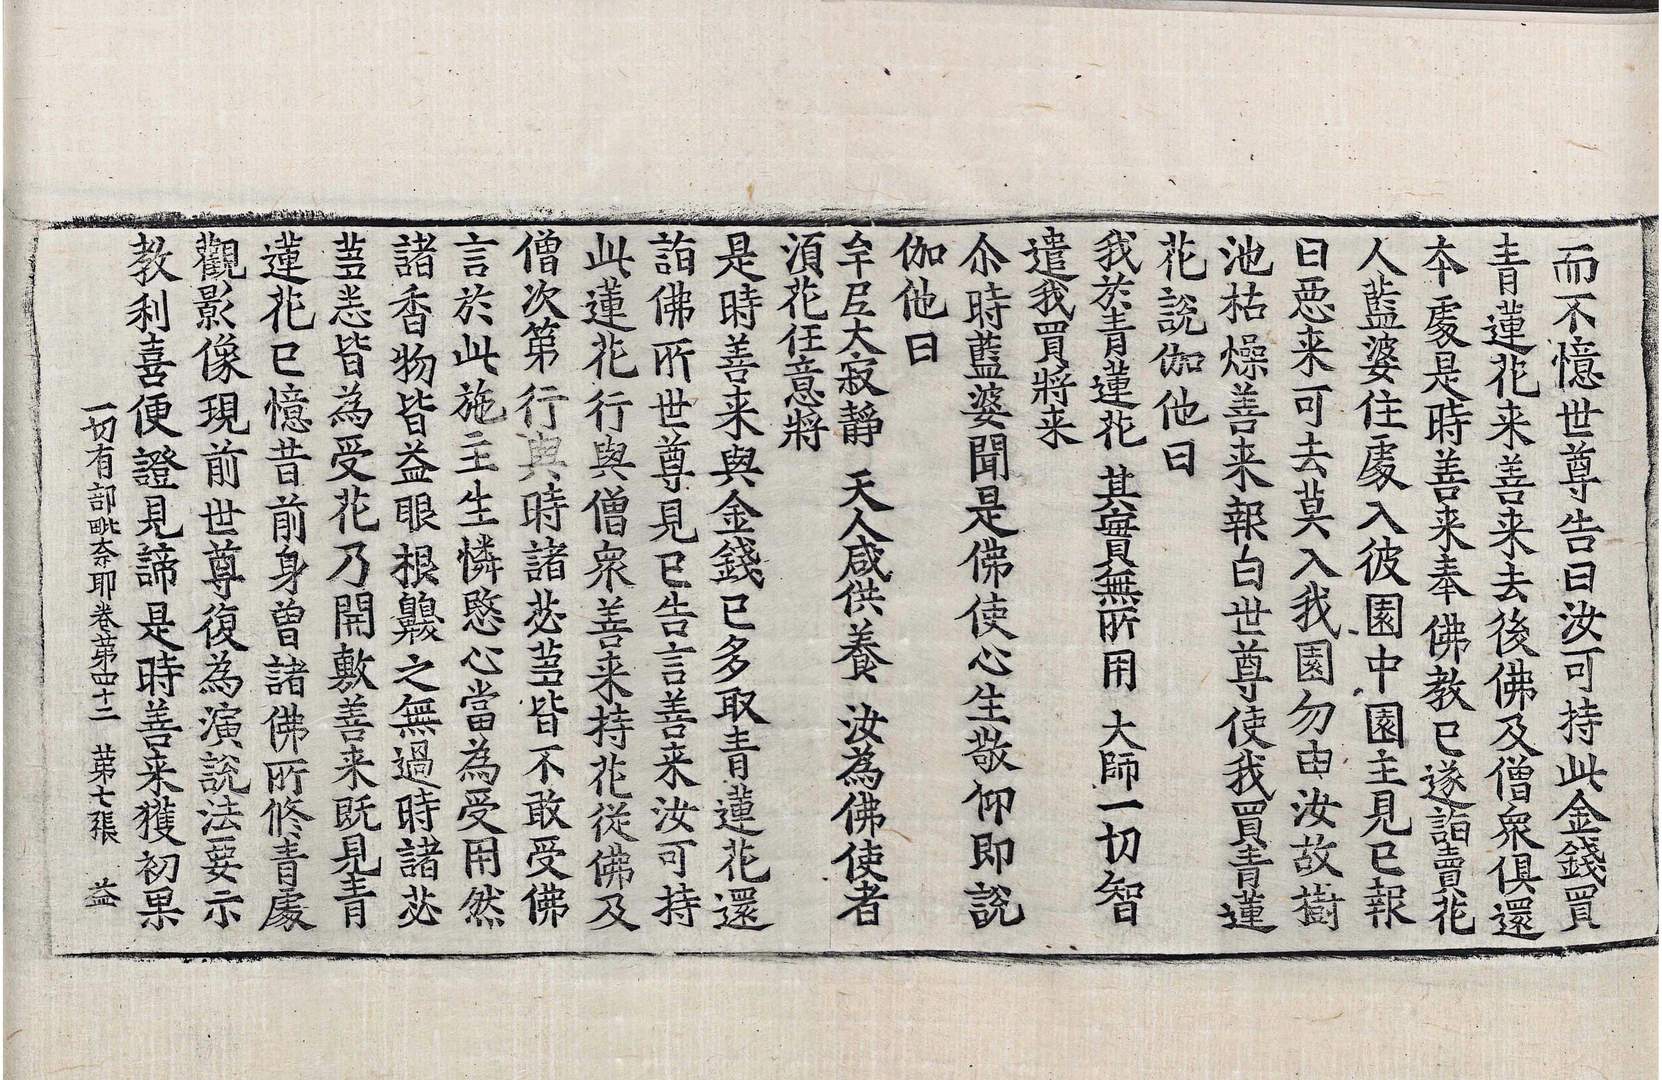 而不憶世尊告曰汝可持此金錢買
青蓮花来善来去後佛及僧衆俱還
本處是時善来奉佛教已遂詣賣花
人藍婆住處入彼園中園主見已報
曰惡来可去莫入我園勿由汝故樹
池枯燥善来報白世尊使我買青蓮
花說伽他曰
我於青蓮花 其實無所用 大師一切智
遣我買將来
尒時藍婆聞是佛使心生敬仰即說
伽他曰
牟尼大寂静 天人咸供養 汝為佛使者
湏花任意將
是時善来與金錢已多取青蓮花還
詣佛所世尊見已告言善来汝可持
此蓮花行與僧衆善来持花從佛及
僧次第行與時諸苾芻皆不敢受佛
言於此施主生憐愍心當為受用然
諸香物皆益眼根齅之無過時諸苾
芻悉皆為受花乃開敷善来既見青
蓮花已憶昔前身曾諸佛所修青處
觀影像現前世尊復為演說法要示
教利喜便證見諦是時善来獲初果
一切有部毗奈耶卷苐四十二 苐七張 益